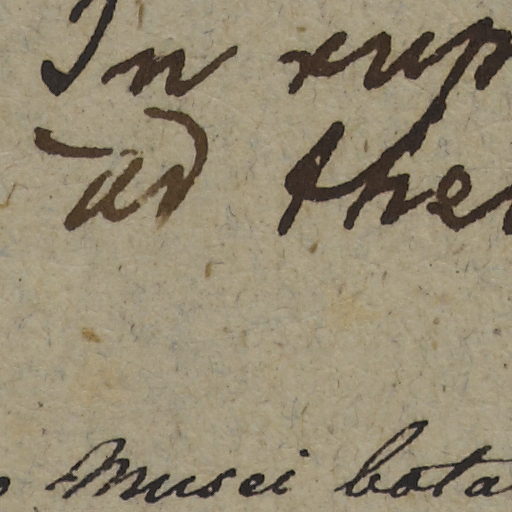 In rup
ad ther
Musei bota